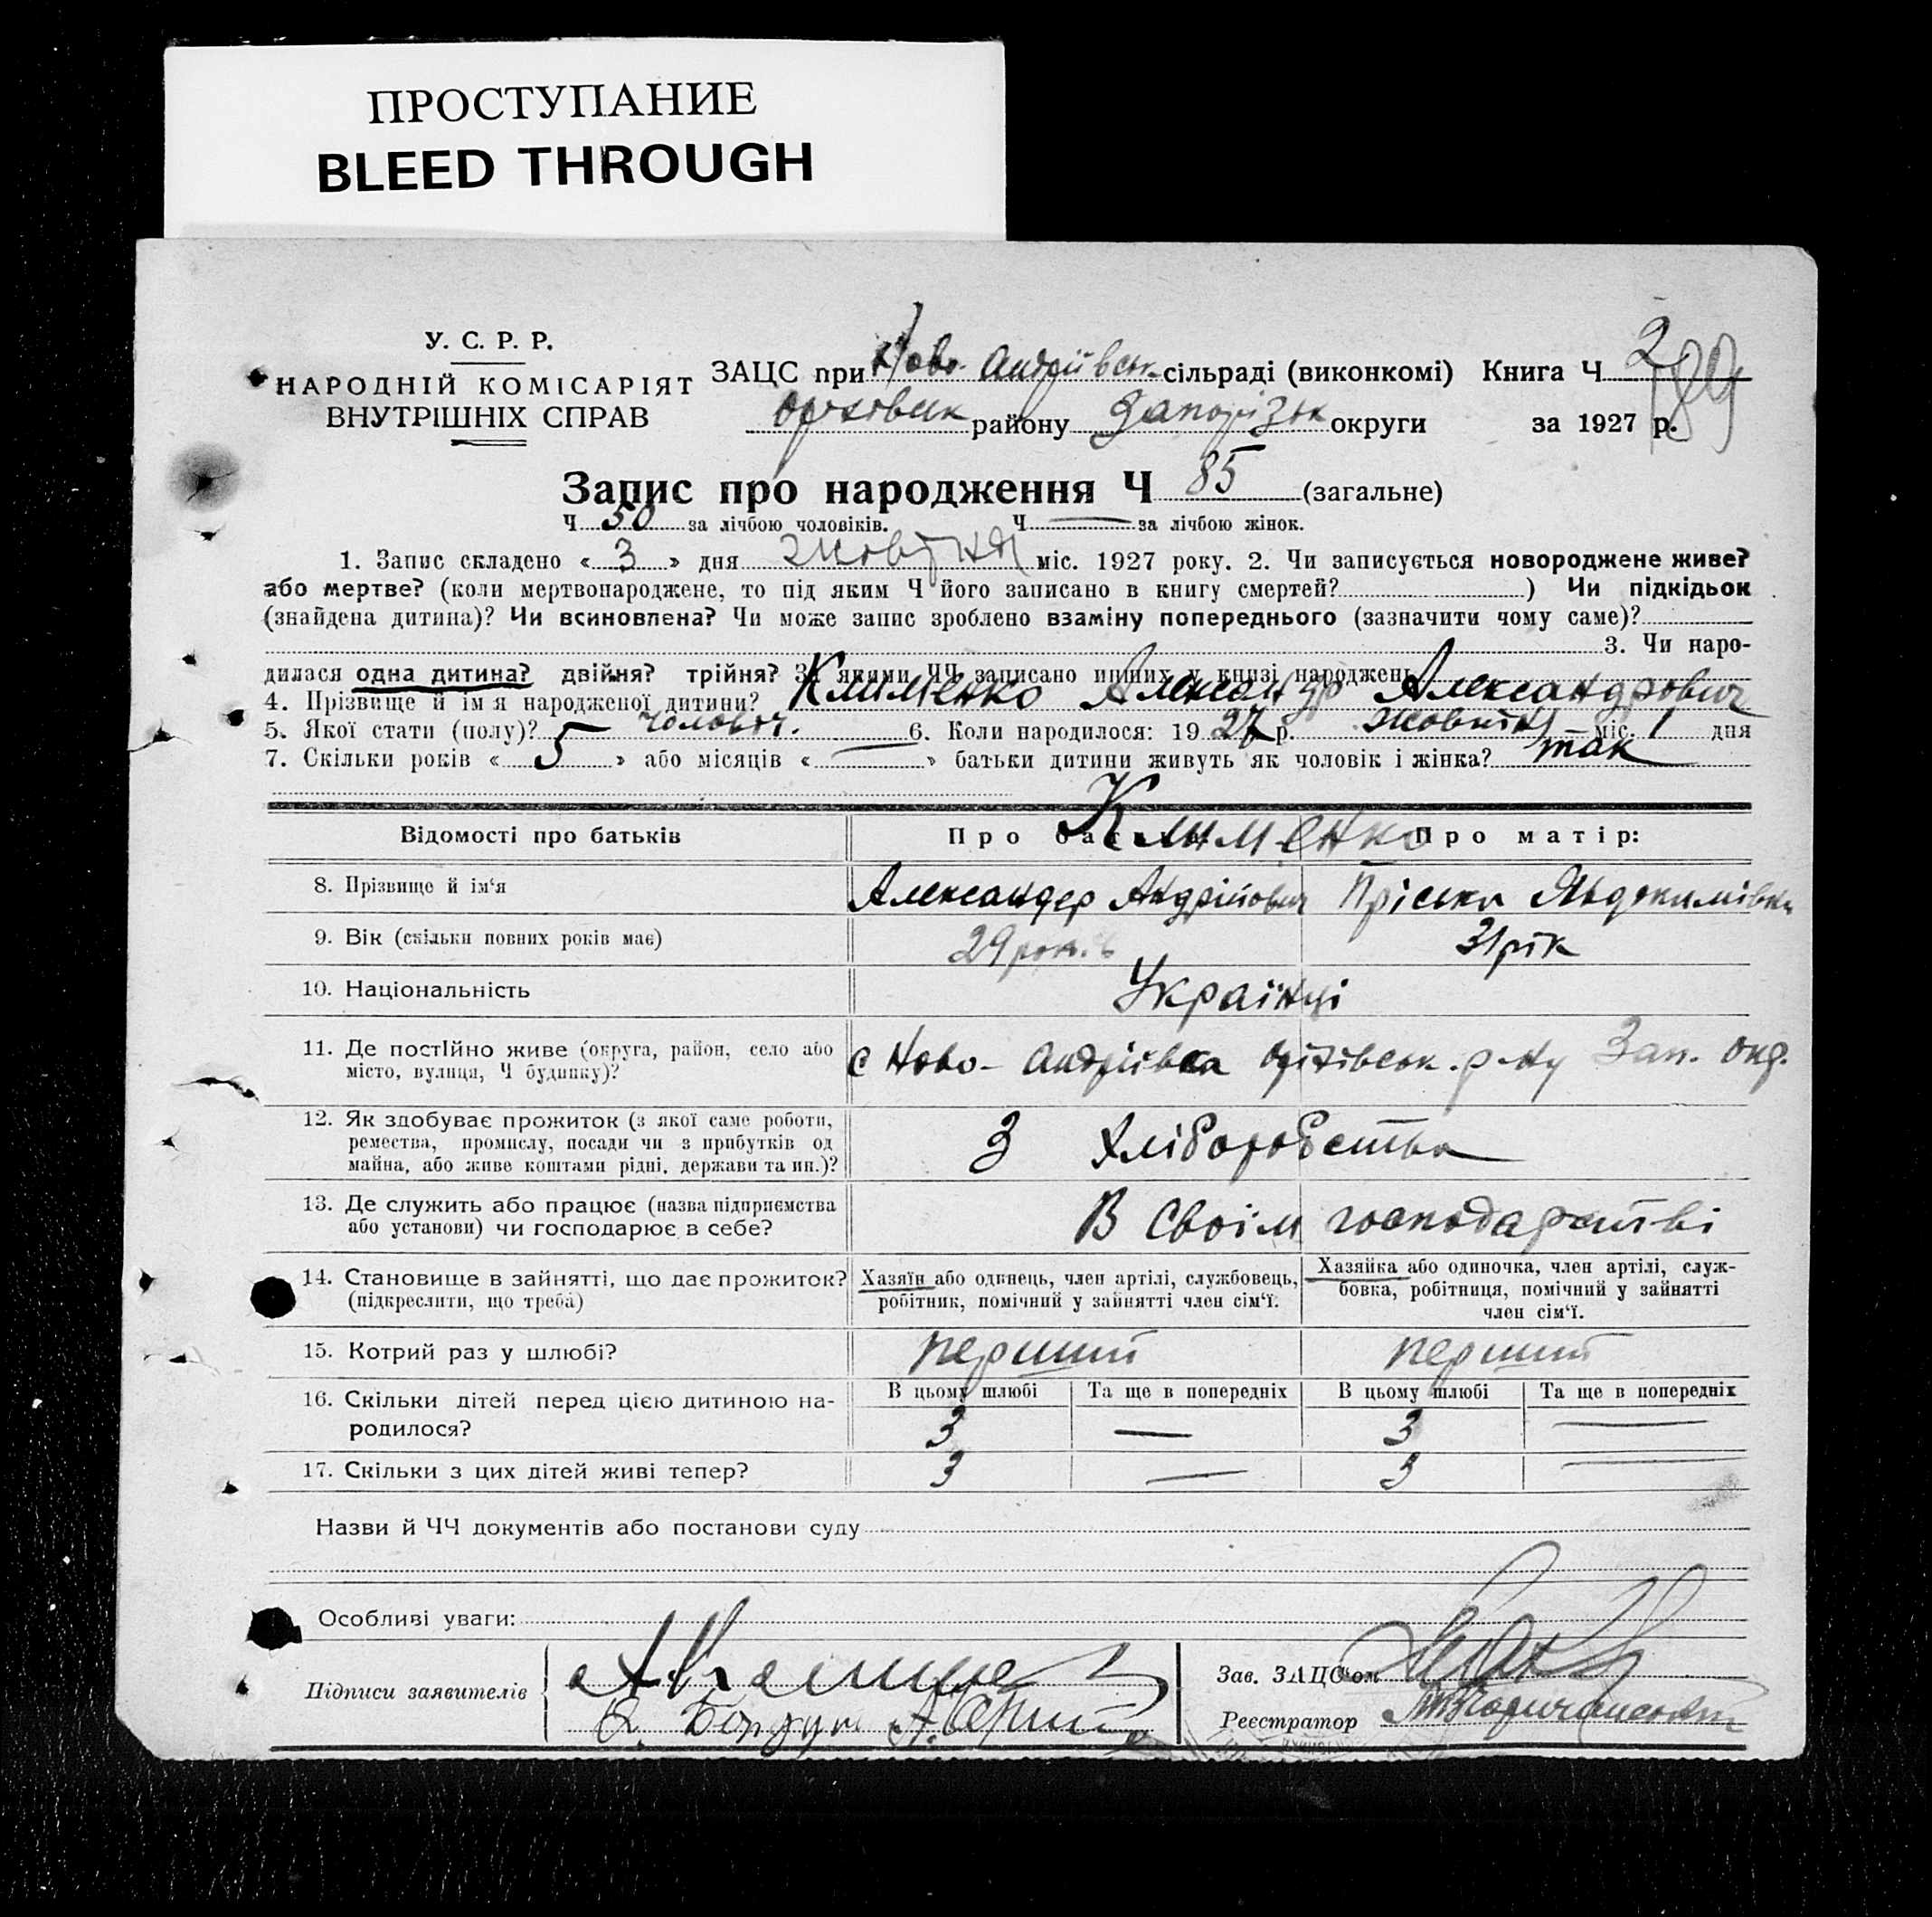 ПРОСТУПАНИЕ
BLEED THROUGH
У. С. Р. Р.
НАРОДНІЙ КОМІСАРІЯТ
ВНУТРІШНІХ СПРАВ
ЗАЦС при Ново-Андріївськ. сільраді (виконкомі) Книга Ч 2
189
Оріхівськ району Запорізьк округи за 1927 р.
Запис про народження Ч 85 (загальне)
Ч 50 за лічбою чоловіків. Ч — за лічбою жінок.
1. Запис складено « 3 » дня жовтня міс. 1927 року. 2. Чи записується новороджене живе?
або мертве? (коли мертвонароджене, то під яким Ч його записано в книгу смертей? ) Чи підкідьок
(знайдена дитина)? Чи всиновлена? Чи може запис зроблено взаміну попереднього (зазначити чому саме)?
3. Чи наро-
дилася одна дитина? двійня? трійня? За якими ЧЧ записано инших у книзі народжень
4. Прізвище й ім'я народженої дитини? Клименко Александр Александрович
5. Якої стати (полу)? чоловіч. 6. Коли народилося: 1927 р. жовтня міс. 1 дня
7. Скільки років « 5 » або місяців « — » батьки дитини живуть як чоловік і жінка? так
Клименко
Відомості про батьків Про батька: Про матір:
8. Прізвище й ім'я Александер Андрійович Пріська Явдокимівна
9. Вік (скільки повних років має) 29 років 31 рік
10. Національність Українці
11. Де постійно живе (округа, район, село або
місто, вулиця, Ч будинку)? с Ново-Андріївка Оріхівськ. р-ну Зап. окр.
12. Як здобуває прожиток (з якої саме роботи,
ремества, промислу, посади чи з прибутків од
майна, або живе коштами рідні, держави та ин.)? З хліборобства
13. Де служить або працює (назва підприємства
або установи) чи господарює в себе? В своїм господарстві
14. Становище в зайнятті, що дає прожиток?
(підкреслити, що треба)
Хазяїн або одинець, член артілі, службовець,
робітник, помічний у зайнятті член сім'ї.
Хазяйка або одиночка, член артілі, служ-
бовка, робітниця, помічний у зайнятті
член сім'ї.
15. Котрий раз у шлюбі? перший перший
В цьому шлюбі Та ще в попередніх В цьому шлюбі Та ще в попередніх
16. Скільки дітей перед цією дитиною на-
родилося? 3 — 3 —
17. Скільки з цих дітей живі тепер? 3 — 3 —
Назви й ЧЧ документів або постанови суду
Особливі уваги:
Підписи заявителів
Зав. ЗАЦС'ом
Реєстратор